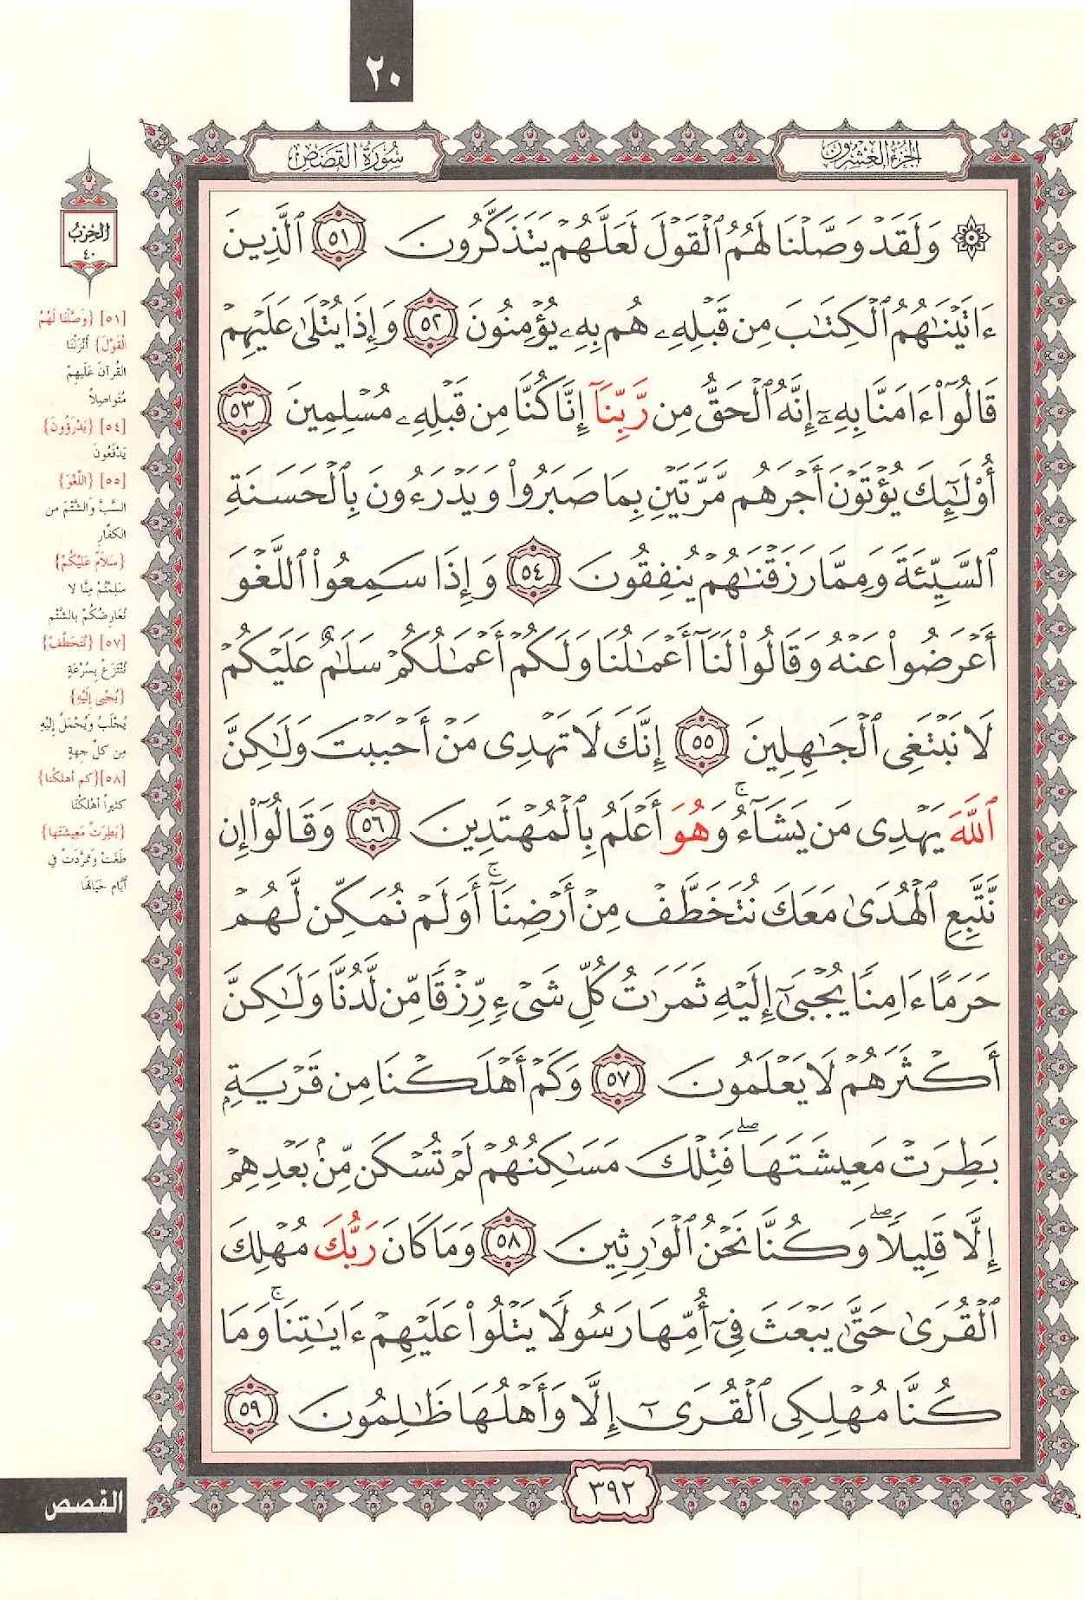 ٢٠
سُورَةُ القَصَصِ
الجُزْءُ العِشْرُونَ
۞ وَلَقَدْ وَصَّلْنَا لَهُمُ ٱلْقَوْلَ لَعَلَّهُمْ يَتَذَكَّرُونَ ٥١ ٱلَّذِينَ
ءَاتَيْنَٰهُمُ ٱلْكِتَٰبَ مِن قَبْلِهِۦ هُم بِهِۦ يُؤْمِنُونَ ٥٢ وَإِذَا يُتْلَىٰ عَلَيْهِمْ
قَالُوٓا۟ ءَامَنَّا بِهِۦٓ إِنَّهُ ٱلْحَقُّ مِن رَّبِّنَآ إِنَّا كُنَّا مِن قَبْلِهِۦ مُسْلِمِينَ ٥٣
أُو۟لَٰٓئِكَ يُؤْتَوْنَ أَجْرَهُم مَّرَّتَيْنِ بِمَا صَبَرُوا۟ وَيَدْرَءُونَ بِٱلْحَسَنَةِ
ٱلسَّيِّئَةَ وَمِمَّا رَزَقْنَٰهُمْ يُنفِقُونَ ٥٤ وَإِذَا سَمِعُوا۟ ٱللَّغْوَ
أَعْرَضُوا۟ عَنْهُ وَقَالُوا۟ لَنَآ أَعْمَٰلُنَا وَلَكُمْ أَعْمَٰلُكُمْ سَلَٰمٌ عَلَيْكُمْ
لَا نَبْتَغِى ٱلْجَٰهِلِينَ ٥٥ إِنَّكَ لَا تَهْدِى مَنْ أَحْبَبْتَ وَلَٰكِنَّ
ٱللَّهَ يَهْدِى مَن يَشَآءُ ۚ وَهُوَ أَعْلَمُ بِٱلْمُهْتَدِينَ ٥٦ وَقَالُوٓا۟ إِن
نَّتَّبِعِ ٱلْهُدَىٰ مَعَكَ نُتَخَطَّفْ مِنْ أَرْضِنَآ ۚ أَوَلَمْ نُمَكِّن لَّهُمْ
حَرَمًا ءَامِنًا يُجْبَىٰٓ إِلَيْهِ ثَمَرَٰتُ كُلِّ شَىْءٍ رِّزْقًا مِّن لَّدُنَّا وَلَٰكِنَّ
أَكْثَرَهُمْ لَا يَعْلَمُونَ ٥٧ وَكَمْ أَهْلَكْنَا مِن قَرْيَةٍۭ
بَطِرَتْ مَعِيشَتَهَا ۖ فَتِلْكَ مَسَٰكِنُهُمْ لَمْ تُسْكَن مِّنۢ بَعْدِهِمْ
إِلَّا قَلِيلًا ۖ وَكُنَّا نَحْنُ ٱلْوَٰرِثِينَ ٥٨ وَمَا كَانَ رَبُّكَ مُهْلِكَ
ٱلْقُرَىٰ حَتَّىٰ يَبْعَثَ فِىٓ أُمِّهَا رَسُولًا يَتْلُوا۟ عَلَيْهِمْ ءَايَٰتِنَا ۚ وَمَا
كُنَّا مُهْلِكِى ٱلْقُرَىٰٓ إِلَّا وَأَهْلُهَا ظَٰلِمُونَ ٥٩
٣٩٢
الحِزْبُ
٤٠
[٥١] {وَصَّلْنَا لَهُمُ
الْقَوْلَ} أَنْزَلْنَا
القُرآنَ عَلَيهِمْ
مُتَواصِلاً
[٥٤] {يَدْرَؤُونَ}
يَدْفَعُونَ
[٥٥] {اللَّغْوَ}
السَّبَّ وَالشَّتْمَ من
الكفَّارِ
{سَلاَمٌ عَلَيْكُمْ}
سَلِمْتُمْ مِنَّا لا
نُعَارِضُكُمْ بالشَّتْم
[٥٧] {نُتَخَطَّفْ}
نُنْتَزَعْ بِسُرْعَةٍ
{يُجْبى إِلَيْهِ}
يُجْلَبُ وَيُحْمَلُ إِلَيْهِ
مِن كلِّ جِهةٍ
[٥٨] {كَم أهلكْنا}
كثيراً أهْلَكْنَا
{بَطِرَتْ مَعِيشَتَها}
طَغَتْ وَتمَرَّدَتْ في
أَيَّامِ حَيَاتِهَا
القصص